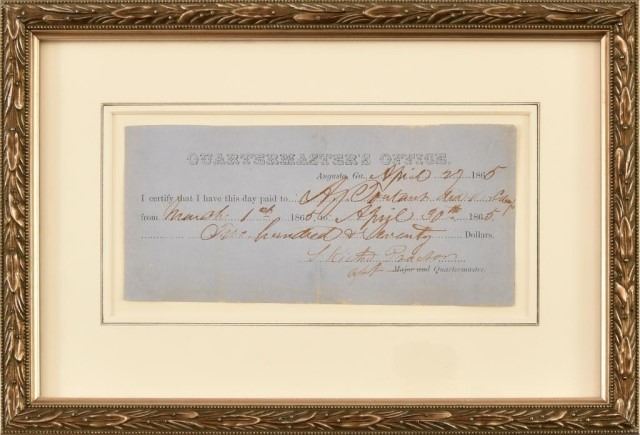 QUARTERMASTER'S OFFICE.
Augusta, Ga., April 27 1865
I certify that I have this day paid to
from March 1st 1865 to April 30th 1865
hundred & Seventy Dollars.
Major and Quartermaster.